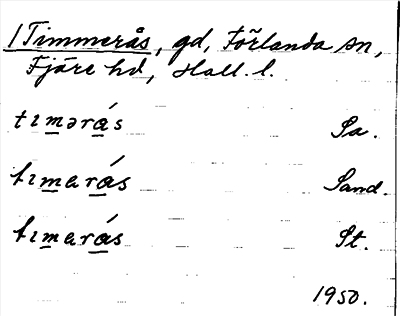 1 Timmerås, gd, Förlanda sn,
Fjäre hd, Hall. l.
tımərås Sa.
tımarås Sand.
tımarås St.
1950.